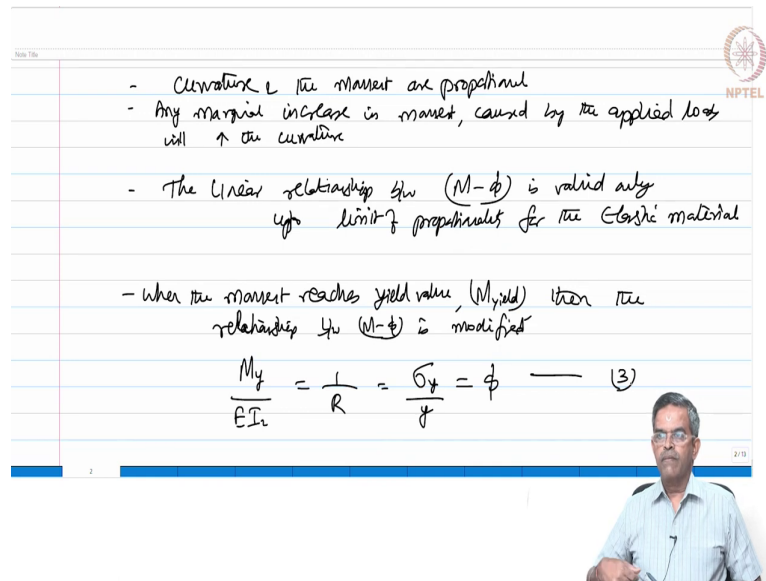 Note Title
NPTEL
- Curvature & the moment are proportional
- Any marginal increase in moment, caused by the applied loads
will ↑ the curvature
- The linear relationship b/w (M-φ) is valid only
upto limit of proportionality for the Elastic material
- When the moment reaches yield value, (Myield) then the
relationship b/w (M-φ) is modified
My/EIz = 1/R = σy/y = φ — (3)
2
2/13